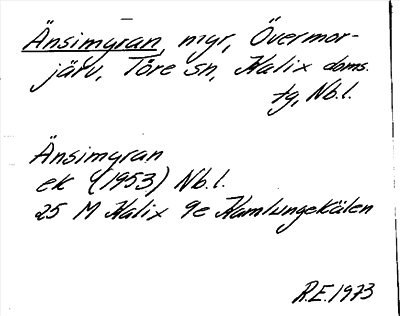 Änsimyran, myr, Övermor-
järv, Töre sn, Kalix doms.
tg, Nb.l.
Änsimyran
ek 4(1953) Nb.l.
25 M Kalix 9e Kamlungekälen
R.E. 1973